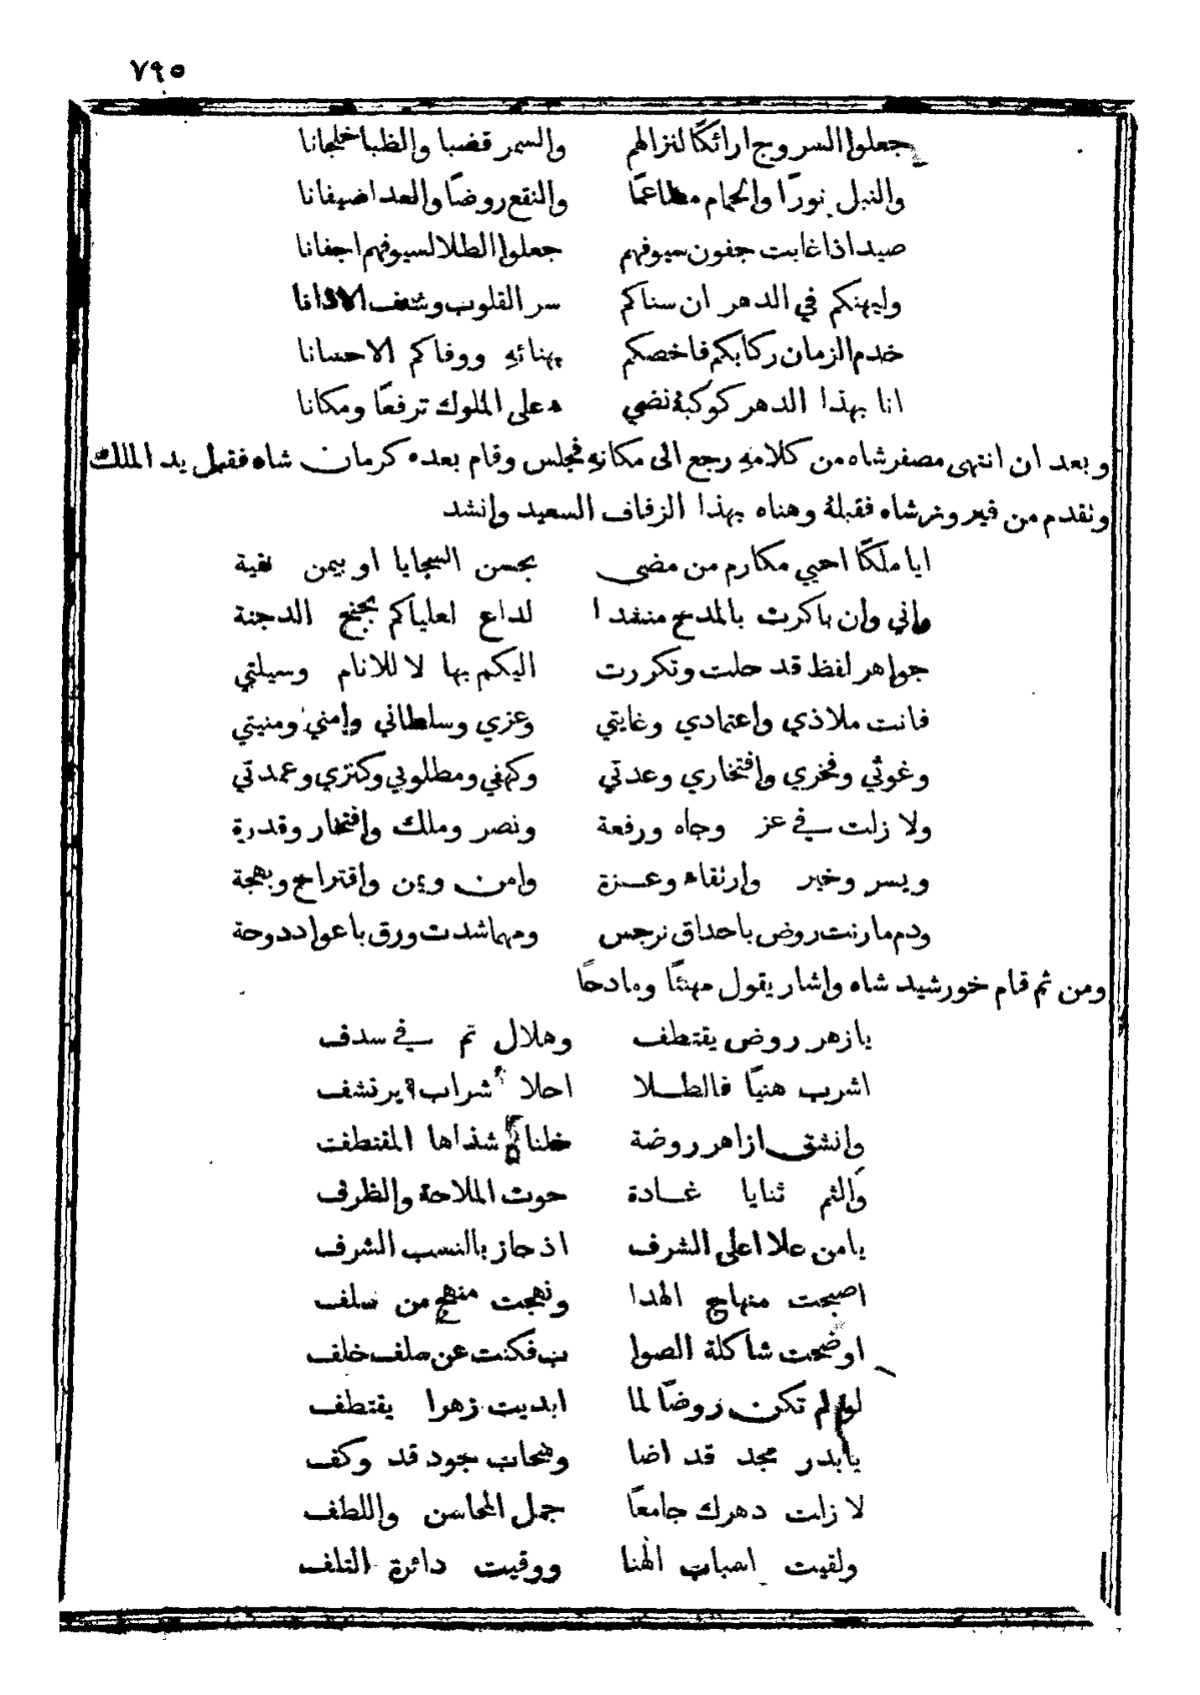 ٧٩٥
جعلوا السروج ارائكًا لنزالهم والسمر قضبا والظبا خلجانا
والنبل نورًا والحمام مطاعمًا والنقع روضًا والعدا ضيفانا
صيد اذا غابت جفون سيوفهم جعلوا الطلا لسيوفهم اجفانا
وليهنكم في الدهر ان سناكم سر القلوب وشنف الاذانا
خدم الزمان ركابكم فاخصكم بهنائهِ ووفاكم الاحسانا
انا بهذا الدهر كوكبة نضي ه على الملوك ترفعًا ومكانا
وبعد ان انتهى مصفرشاه من كلامهِ رجع الى مكانهِ فجلس وقام بعده كرمان شاه فقبل يد الملك
وتقدم من فيروزشاه فقبلهُ وهناه بهذا الزفاف السعيد وانشد
ايا ملكًا احيي مكارم من مضى بحسن السجايا او بيمن نقية
واني وان باكرت بالمدح منشدا لداع لعلياكم بجنح الدجنة
جواهر لفظ قد حلت وتكررت اليكم بها لا للانام وسيلتي
فانت ملاذي واعتمادي وغايتي وعزي وسلطاني وامني ومنيتي
وغوثي وفخري وافتخاري وعدتي وكهفي ومطلوبي وكنزي وعمدتي
ولا زلت في عز وجاه ورفعة ونصر وملك وافتخار وقدرة
ويسر وخير وارتقاء وعزة وامن ويمن واقتراح وبهجة
ودم ما رنت روض باحداق نرجس ومهما شدت ورق باعواد دوحة
ومن ثم قام خورشيد شاه واشار يقول مهنئًا ومادحًا
يا زهر روض يقتطف وهلال تم في سدف
اشرب هنيًا فالطلا احلا شراب يرتشف
وانشق ازاهر روضة خلنا شذاها المقتطفت
والثم ثنايا غادة حوت الملاحة والظرف
يا من علا اعلى الشرف اذ حاز بالنسب الشرف
اصبحت منهاج الهدا ونهجت منهج من سلف
اوضحت شاكلة الصوا ب فكنت عن سلف خلف
لو لم تكن روضًا لما ابديت زهرا يقتطف
يا بدر مجد قد اضا وسحاب جود قد وكف
لا زلت دهرك جامعًا جمل المحاسن واللطف
ولقيت اسباب الهنا ووقيت دائرة التلف